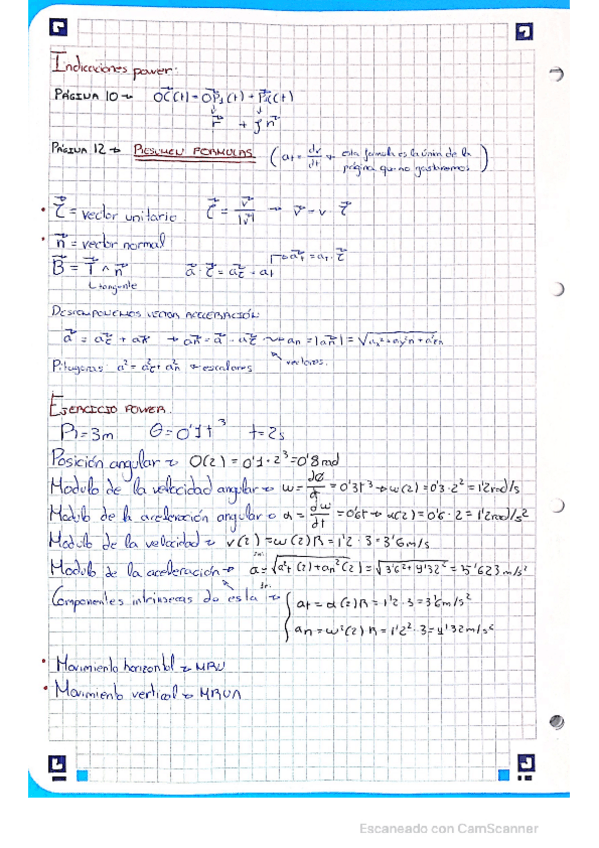 Indicaciones power:
PÁGINA 10→ OC(t) = OP₁(t) + P₁C(t)
r + ρ n
PÁGINA 12→ RESUMEN FORMULAS (at = dv/dt → esta formula es la única de la
página que no gastaremos)
• τ = vector unitario τ = v/|v| → v = v · τ
• n = vector normal
B = T ∧ n a · τ = aτ = at → at = at · τ
↳ tangente
DESCOMPONEMOS VECTOR ACELERACIÓN:
a = aτ + an → an = a - aτ → an = |an| =
vectores.
Pitagoras a² = a²τ + a²n → escalares
EJERCICIO POWER:
R = 3m θ = 0'1t³ t = 2s
Posición angular → θ(2) = 0'1 · 2³ = 0'8 rad
Modulo de la velocidad angular → ω = dθ/dt = 0'3t² → ω(2) = 0'3 · 2² = 1'2 rad/s
Modulo de la aceleración angular → α = dω/dt = 0'6t → α(2) = 0'6 · 2 = 1'2 rad/s²
Modulo de la velocidad → v(2) = ω(2)R = 1'2 · 3 = 3'6 m/s
Modulo de la aceleración → a = √a²t(2) + an²(2) = √3'6² + 4'32² = 5'623 m/s²
Componentes intrinsecas de esta → { at = α(2)R = 1'2 · 3 = 3'6 m/s²
an = ω²(2) R = 1'2² · 3 = 4'32 m/s²
• Movimiento horizontal → MRU
• Movimiento vertical → MRUA
Escaneado con CamScanner